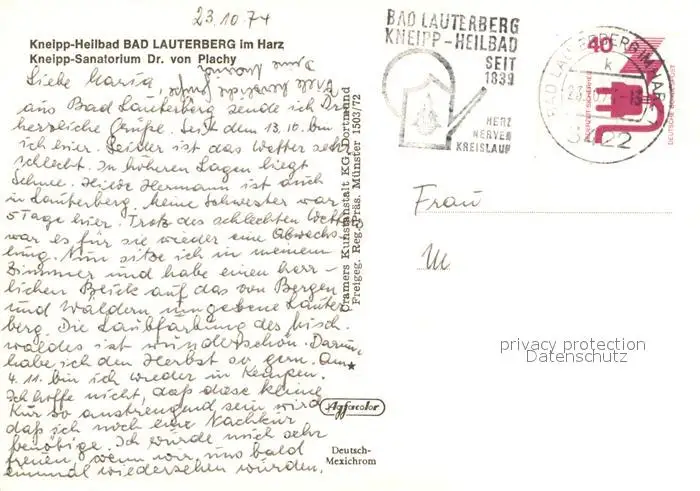 23.10.74
Kneipp-Heilbad BAD LAUTERBERG im Harz
Kneipp-Sanatorium Dr. von Plachy
Liebe Maria,
aus Bad Lauterberg sende ich Dir
herzliche Grüße. Seit dem 13.10. bin
ich hier. Leider ist das Wetter sehr
schlecht. In höheren Lagen liegt
Schnee. Hilde Hermann ist auch
in Lauterberg. Meine Schwester war
5 Tage hier. Trotz des schlechten Wetters
war es für sie wieder eine Abwechs-
lung. Nun sitze ich in meinem
Zimmer und habe einen herr-
lichen Blick auf das von Bergen
und Wäldern umgebene Lauter-
berg. Die Laubfärbung des Misch-
waldes ist wunderschön. Darum
habe ich den Herbst so gern. Am
4.11. bin ich wieder in Kempen.
Ich hoffe nicht, daß diese kleine
Kur so anstrengend sein wird
daß ich noch eine Nachkur
benötige. Ich würde mich sehr
freuen, wenn wir uns bald
einmal wiedersehen würden.
Cramers Kunstanstalt KG, Dortmund
Freigeg. Reg.-Präs. Münster 1503/72
Agfacolor
Deutsch-
Mexichrom
BAD LAUTERBERG
KNEIPP-HEILBAD
SEIT
1839
HERZ
NERVEN
KREISLAUF
BAD LAUTERBERG IM HARZ
k
40
DEUTSCHE BUNDESPOST
Frau
privacy protection
Datenschutz